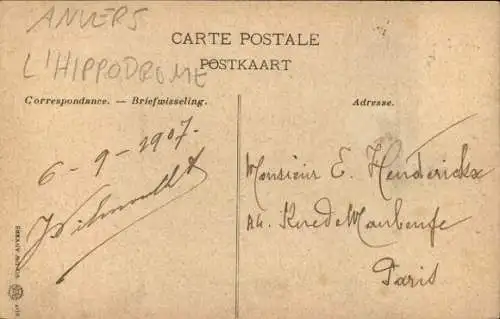 ANVERS
L'HIPPODROME
CARTE POSTALE
POSTKAART
Correspondance. — Briefwisseling.
Adresse.
6-9-1907.
Monsieur E. Henderickx
Rue de Maubeuge
Paris
ANVERS